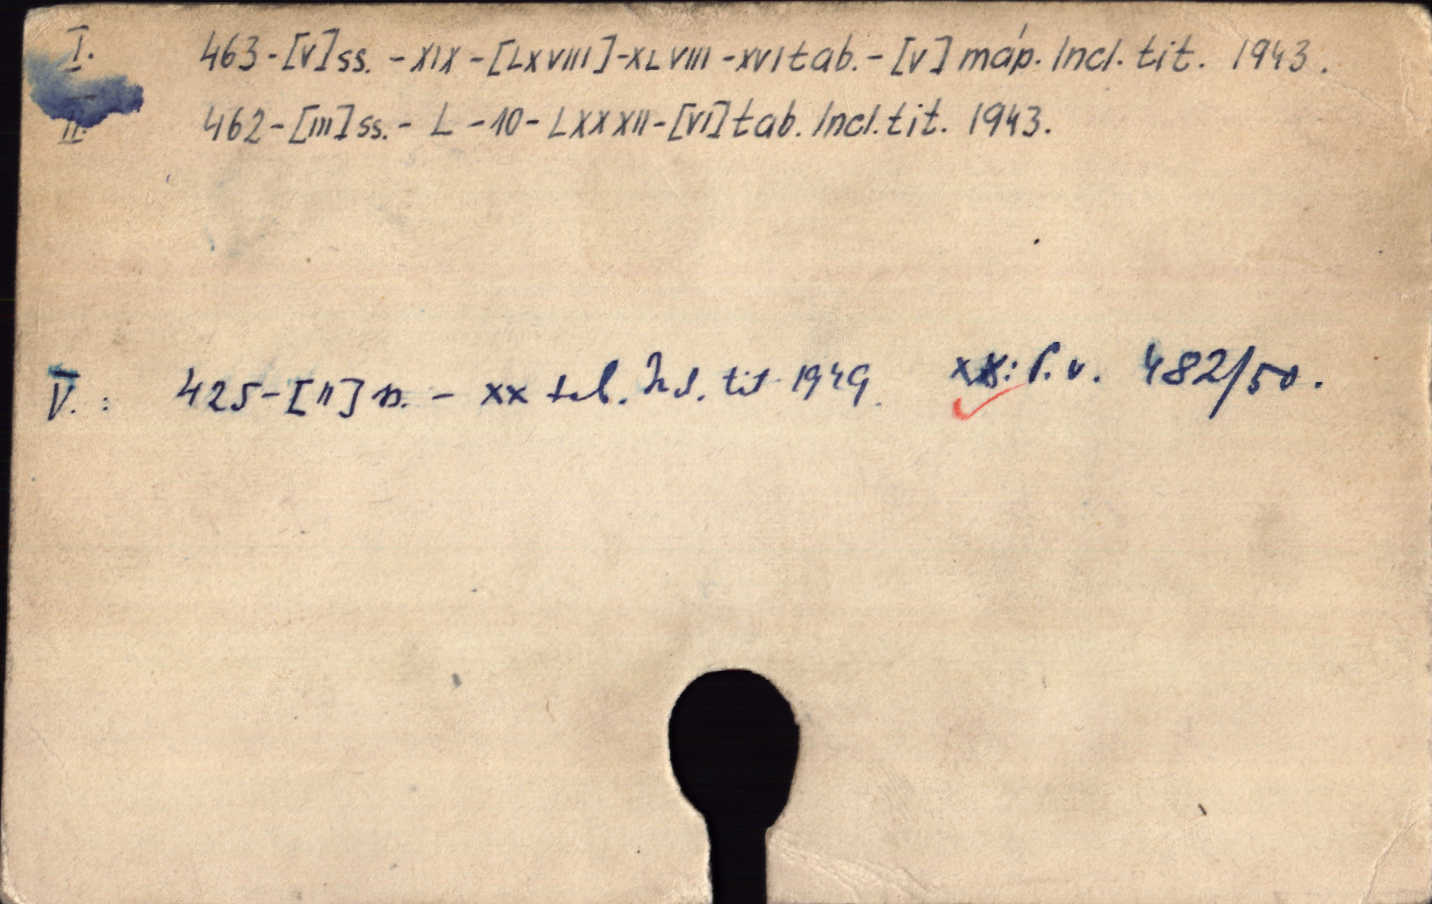 I. 463-[V]ss. -XIX-[LXVIII]-XLVIII-XVItab.-[V] máp. Incl. tit. 1943.
II. 462-[III]ss.- L -10- LXXXII-[VI]tab. Incl. tit. 1943.
V. : 425-[II] ss. - XX tab. Incl. tit 1949. 482/50.